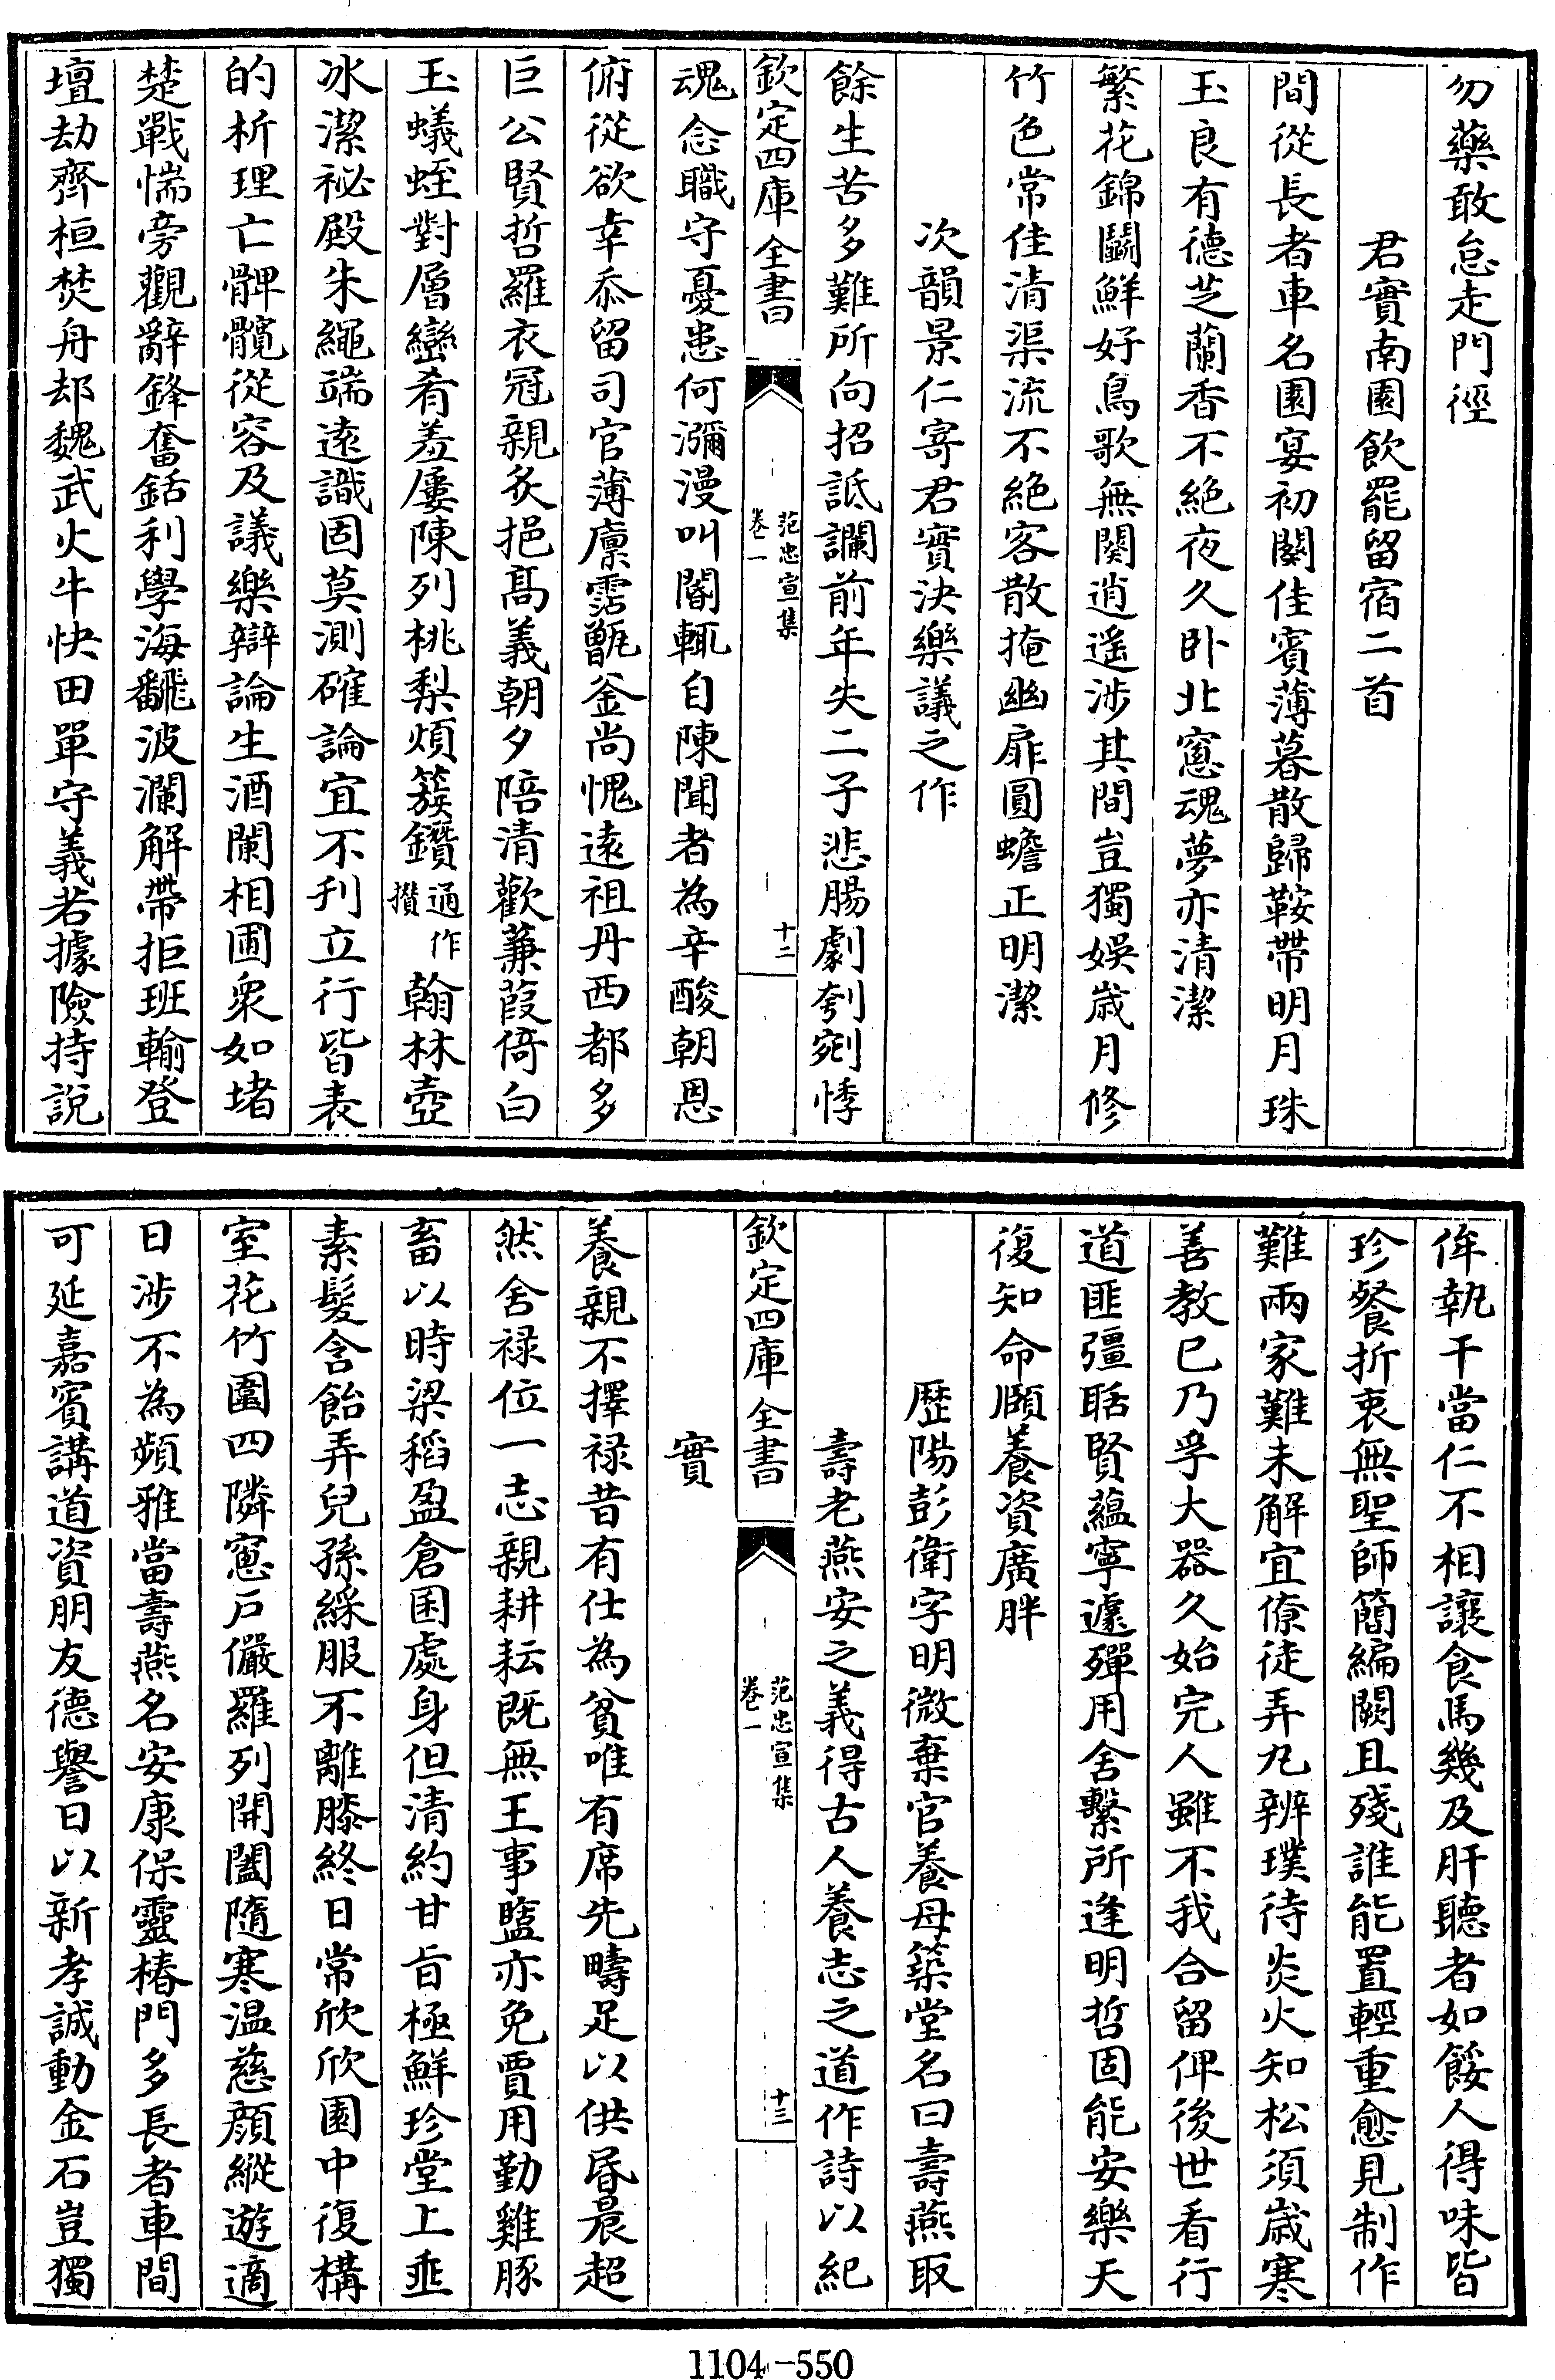 勿藥敢怠走門徑
君實南園飲罷留宿二首
間從長者車名園宴初闋佳賓薄暮散歸鞍帶明月珠
玉良有德芝蘭香不絕夜久卧北窻魂夢亦清潔
繁花錦鬭鮮好鳥歌無闋逍遙涉其間豈獨娯歲月修
竹色常佳清渠流不絕客散掩幽扉圓蟾正明潔
次韻景仁寄君實決樂議之作
餘生苦多難所向招詆讕前年失二子悲腸劇刳剜悸
欽定四庫全書
范忠宣集
卷一
十二
魂念職守憂患何瀰漫叫閽輒自陳聞者為辛酸朝恩
俯從欲幸忝留司官薄廪霑甑釡尚愧遠祖丹西都多
巨公賢哲羅衣冠親炙挹髙義朝夕陪清歡蒹葭倚白
玉蟻蛭對層巒肴羞屢陳列桃梨煩簇鑽
通作
攢
翰林壺
冰潔祕殿朱繩端遠識固莫測確論宜不刋立行皆表
的析理亡髀髖從容及議樂辯論生酒闌相圃衆如堵
楚戰惴旁觀辭鋒奮銛利學海飜波瀾解帶拒班輸登
壇劫齊桓焚舟却魏武火牛快田單守義若據險持說
侔執干當仁不相讓食馬幾及肝聽者如餒人得味皆
珍餐折衷無聖師簡編闕且殘誰能置輕重愈見制作
難兩家難未解宜僚徒弄丸辨璞待炎火知松須歲寒
善教巳乃孚大器久始完人雖不我合留俾後世看行
道匪彊聒賢藴寧遽殫用舍繫所逢明哲固能安樂天
復知命頤養資廣胖
歴陽彭衛字明微棄官養母築堂名曰壽燕取
壽老燕安之義得古人養志之道作詩以紀
欽定四庫全書
范忠宣集
卷一
十三
實
養親不擇禄昔有仕為貧唯有席先疇足以供昬晨超
然舍禄位一志親耕耘既無王事盬亦免賈用勤雞豚
畜以時梁稻盈倉囷處身但清約甘㫖極鮮珍堂上垂
素髮含飴弄兒孫綵服不離膝終日常欣欣園中復構
室花竹圍四隣窻戸儼羅列開闔隨寒温慈顔縱遊適
日涉不為頻雅當壽燕名安康保靈椿門多長者車間
可延嘉賓講道資朋友德譽日以新孝誠動金石豈獨
1104-550